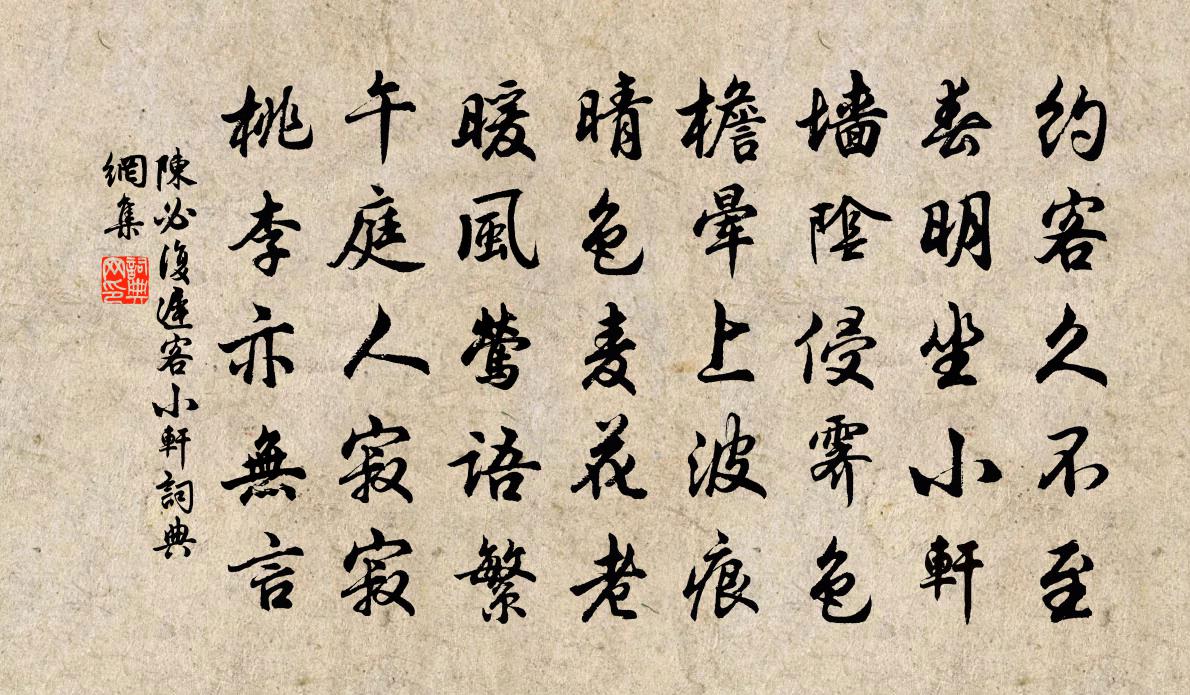 約客久不至
春明坐小軒
墙陰侵霽色
檐暈上波痕
晴色麦花老
暖風鶯語繁
午庭人寂寂
桃李亦無言
陳必復遲客小軒詞典
網集
詞典
网印